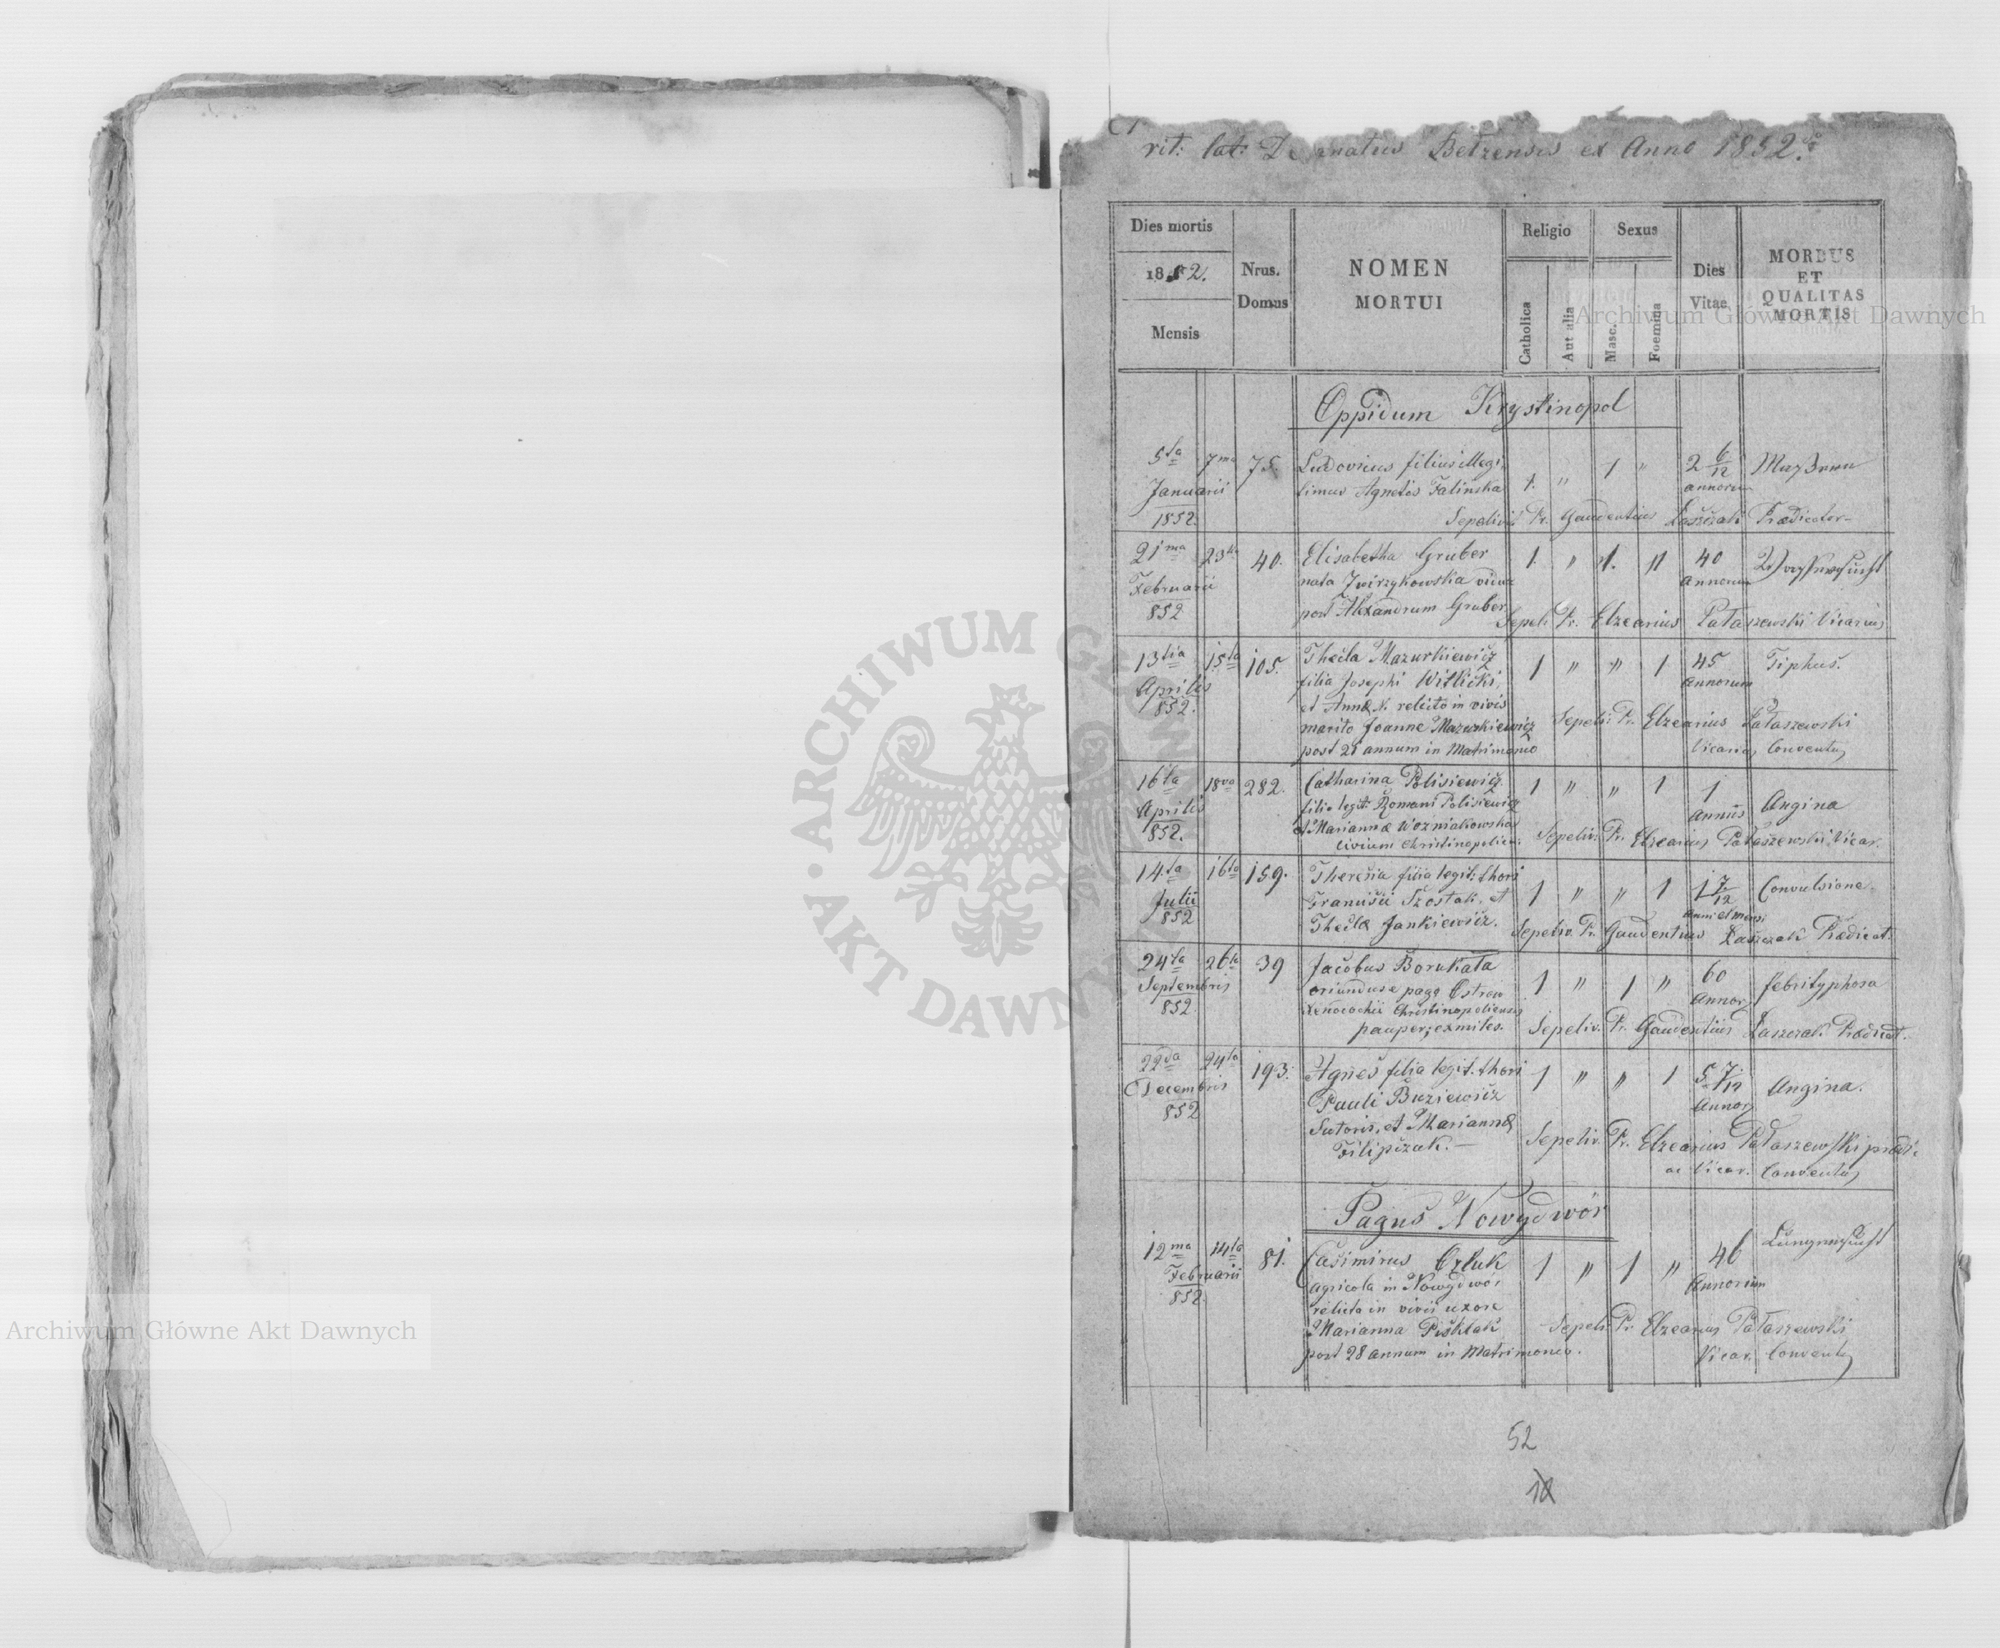 rit: lat: Decanatus Bełzensis ex Anno 1852.
Dies mortis
1852.
Mensis
Nrus.
Domus
NOMEN
MORTUI
Religio
Catholica
Aut alia
Sexus
Masc.
Foemina
Dies
Vitae
MORBUS
ET
QUALITAS
MORTIS
Oppidum Krystinopol
5ta 7ma 75 Ludovicus filius illegi
Januarii timus Agnetis Falinska 1. " 1 " 2 6/12
annorum
1852. Sepelivit Pr. Gaudentius Praedicator
21ma 23tia 40. Elisabetha Gruber 1. " 1. " 40
Februarii nata Zwirzykowska vidua Annorum
852 post Alexandrum Gruber Sepeli. Pr. Elzearius Pałaszewski Vicarius
13tia 15ta 105. Thecla Mazurkiewicz 1 " " 1 45 Tiphus.
Aprilis filia Josephi Witlicki, Annorum
852. et Annæ N. relicto in vivis
marito Joanne Mazurkiewicz Sepeli: Pr. Elzearius Pałaszewski
post 21 annum in Matrimonio Vicarius Conventus
16ta 18va 282. Catharina Polisiewicz 1 " " 1 1 Angina
Aprilis filia legit: Romani Polisiewicz Annus
852. et Mariannæ Wozniakowska
civium Christinopolien: Sepeliv. Pr. Elzearius Pałaszewski Vicar.
14ta 16ta 159. Theresia filia legit: thori 1 " " 1 1 7/12 Convulsione.
Julii Szostak, et
852 Theclæ Jankiewicz. Sepeliv. Pr. Gaudentius Praedicat.
24ta 26ta 39 Jacobus Borukała 1 " 1 " 60 febrityphosa
Septembris oriundus e pago Ostrow Annor
852. Xenodochii Christinopoliensis
pauper, exmiles. Sepeliv. Pr. Gaudentius Praedicat.
22da 24ta 193. Agnes filia legit. thori 1 " " 1 5 7/12 Angina.
Decembris Pauli Buziewicz Annor
852 Sutoris, et Mariannæ
Filipczak. — Sepeliv. Pr. Elzearius Pałaszewski prædi:
ac Vicar. Conventus
Pagus Nowydwór
12ma 14ta 81. Casimirus 1 " 1 " 46 Lungensucht
Februarii agricola in Nowydwór Annorum
852. relicta in vivis uxore
Marianna Sepeli: Pr. Elzearius Pałaszewski
post 28 annum in Matrimonio. Vicar. Conventus
52
Archiwum Główne Akt Dawnych
Archiwum Główne Akt Dawnych
ARCHIWUM GŁÓWNE · AKT DAWNYCH